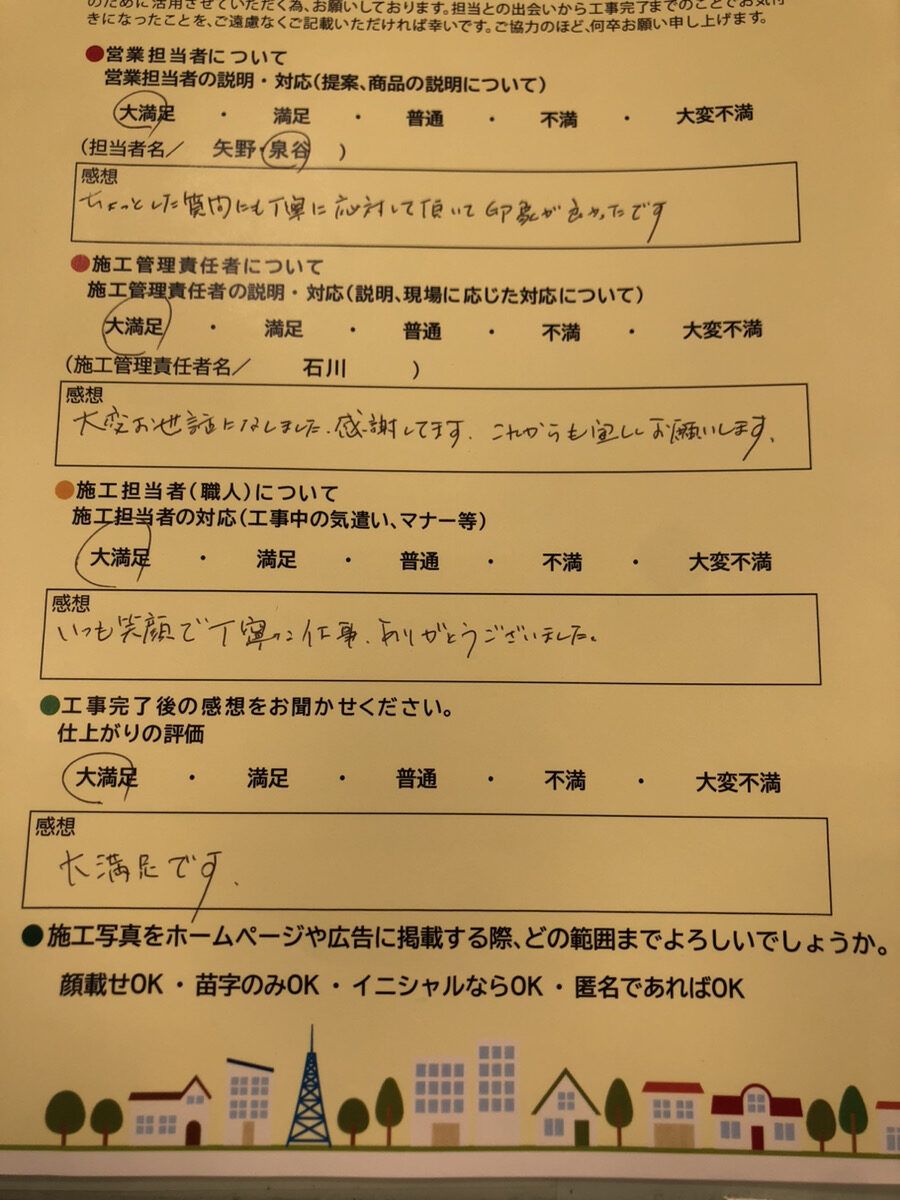 のために活用させていただく為、お願いしております。担当との出会いから工事完了までのことでお気付
きになったことを、ご遠慮なくご記載いただければ幸いです。ご協力のほど、何卒お願い申し上げます。
●営業担当者について
営業担当者の説明・対応(提案、商品の説明について)
大満足 ・ 満足 ・ 普通 ・ 不満 ・ 大変不満
(担当者名/ 矢野・泉谷 )
感想
ちょっとした質問にも丁寧に応対して頂いて印象が良かったです
●施工管理責任者について
施工管理責任者の説明・対応(説明、現場に応じた対応について)
大満足 ・ 満足 ・ 普通 ・ 不満 ・ 大変不満
(施工管理責任者名/ 石川 )
感想
大変お世話になしました。感謝してます。これからも宜しくお願いします。
●施工担当者(職人)について
施工担当者の対応(工事中の気遣い、マナー等)
大満足 ・ 満足 ・ 普通 ・ 不満 ・ 大変不満
感想
いつも笑顔で丁寧な仕事、ありがとうございました。
●工事完了後の感想をお聞かせください。
仕上がりの評価
大満足 ・ 満足 ・ 普通 ・ 不満 ・ 大変不満
感想
大満足です。
●施工写真をホームページや広告に掲載する際、どの範囲までよろしいでしょうか。
顔載せOK ・ 苗字のみOK ・ イニシャルならOK ・ 匿名であればOK